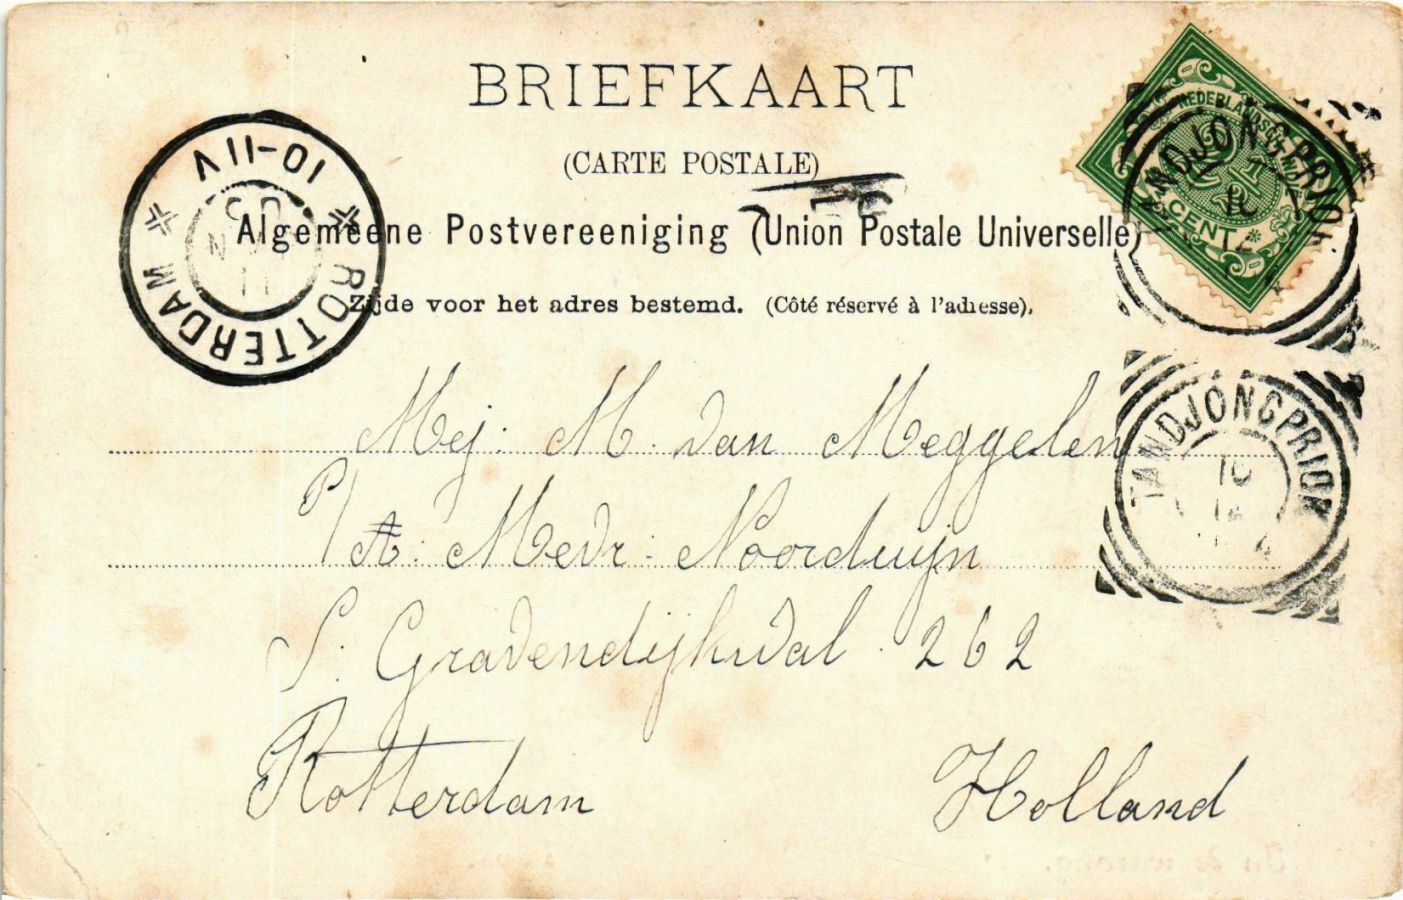 BRIEFKAART
(CARTE POSTALE)
Algemeene Postvereeniging (Union Postale Universelle)
Zijde voor het adres bestemd. (Côté réservé à l'adresse).
NEDERLANDSCH-INDIË
2½
CENT
TANDJONGPRIOK
10
TANDJONGPRIOK
10
ROTTERDAM
10-11V
Mej: M. van Meggelen
P/A: Mevr: Noorduijn
S. Gravendijkwal 262
Rotterdam Holland